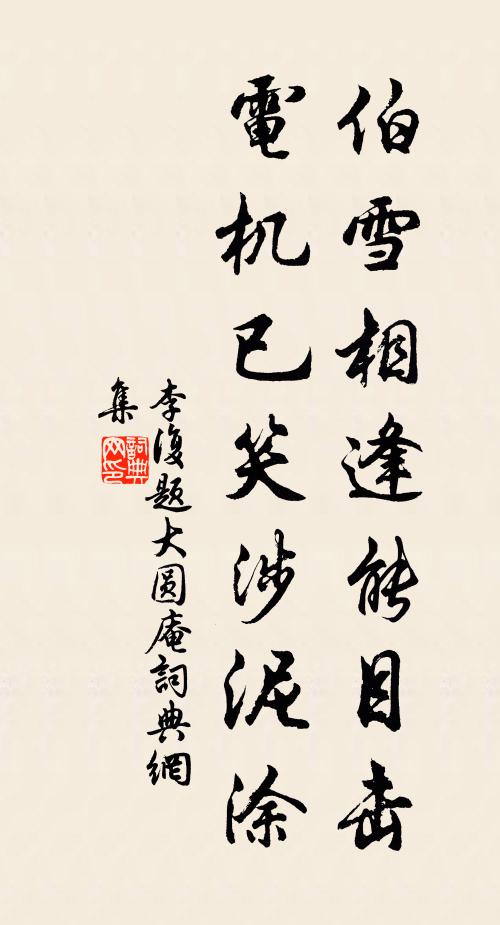 伯雪相逢能目击
電机已笑涉泥涂
李復题大圆庵詞典網
集
詞典网印